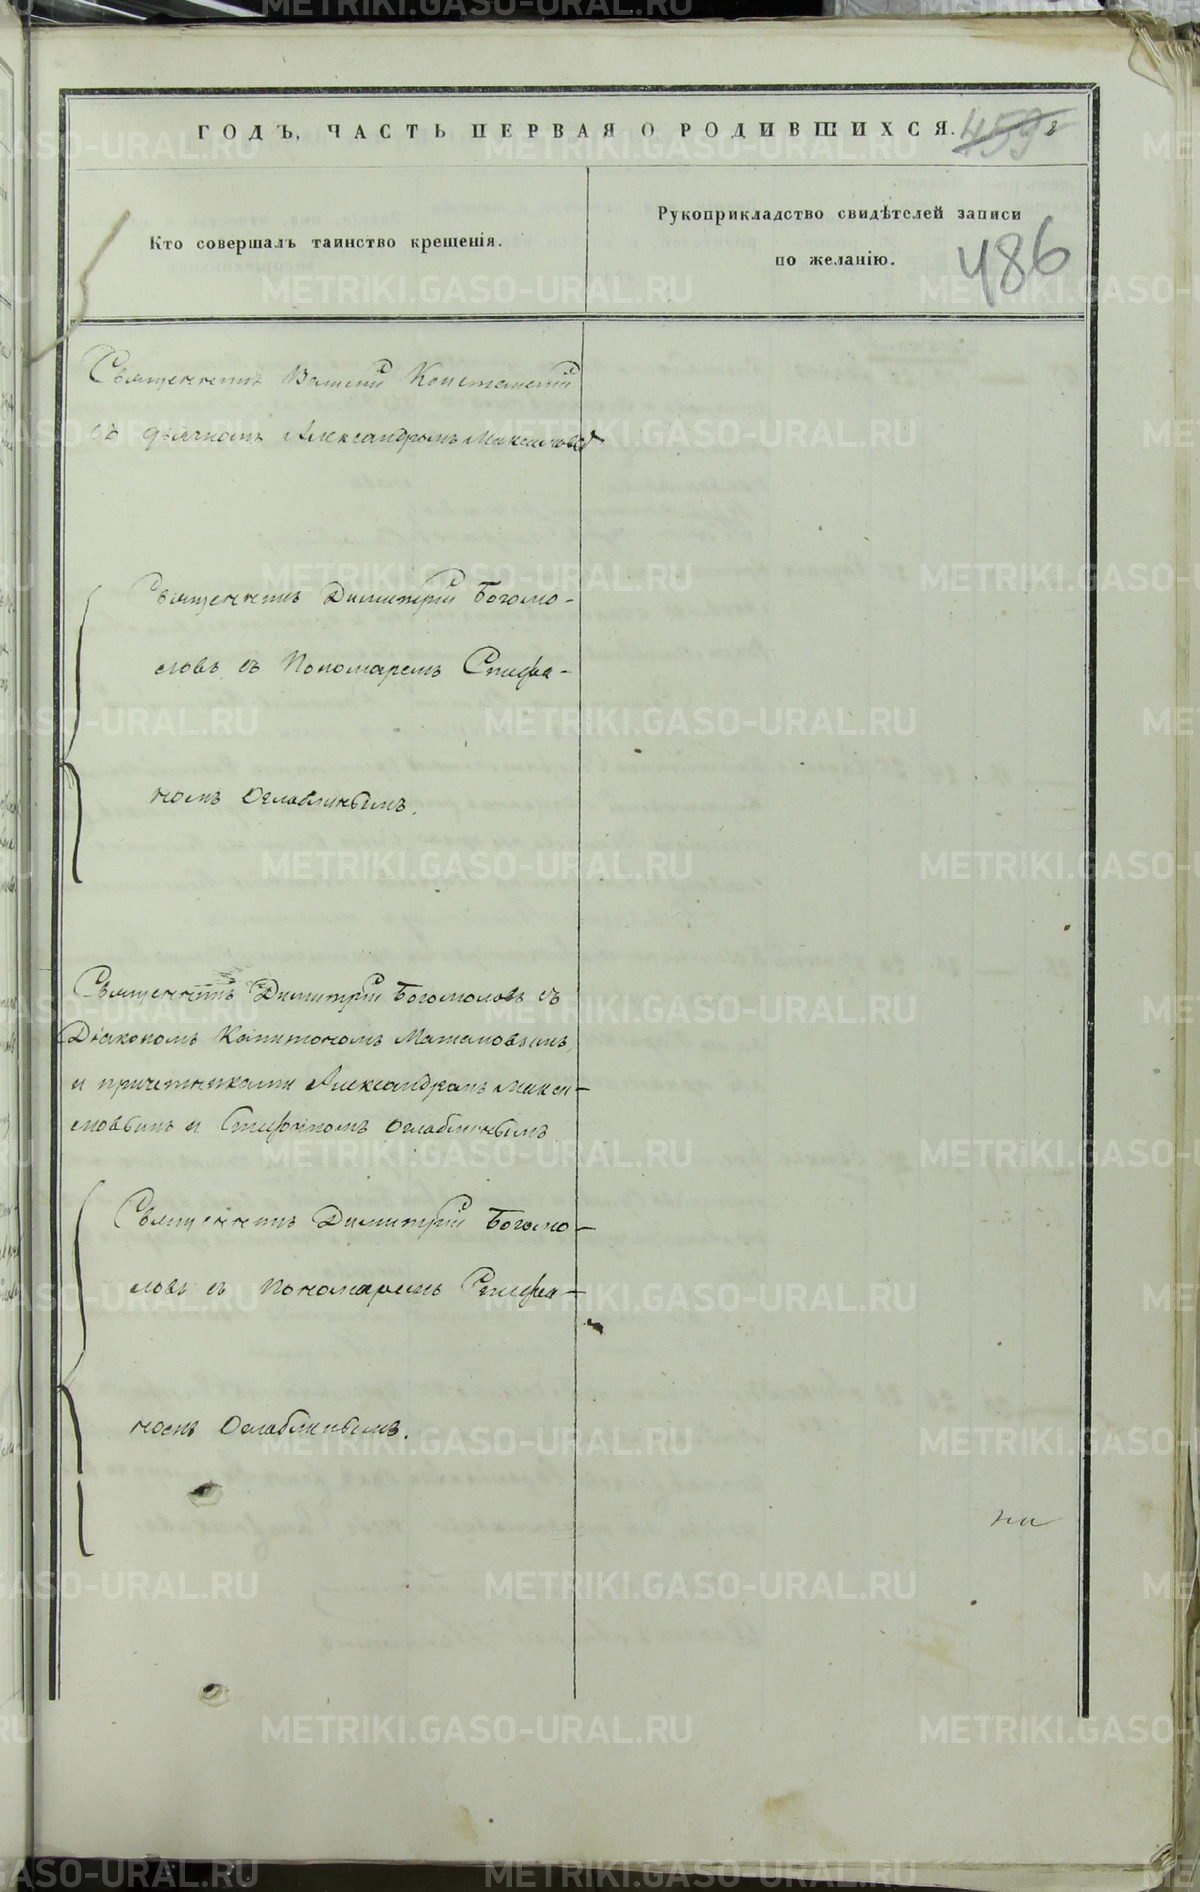 ГОДЪ, ЧАСТЬ ПЕРВАЯ О РОДИВШИХСЯ.
459
Кто совершалъ таинство крещенія.
Рукоприкладство свидѣтелей записи
по желанію.
486
Священникъ Василій
съ дьячкомъ Александромъ Максимовы
Священникъ Димитрій Богомо-
ловъ съ Пономаремъ Стифа-
номъ Оглаблинымъ.
Священникъ Димитрій Богомоловъ съ
Діакономъ Капитономъ
и причетниками Александромъ Макси-
мовымъ и Стифаномъ Оглаблинымъ
Священникъ Димитрій Богомо-
ловъ съ Пономаремъ Стифа-
номъ Оглаблинымъ.
METRIKI.GASO-URAL.RU